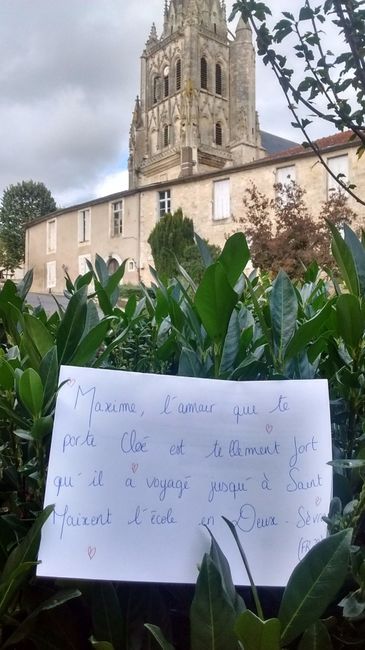 Maxime, l'amour que te
porte Cloé est tellement fort
qu'il a voyagé jusqu'à Saint
Maixent l'école en Deux-Sèvre